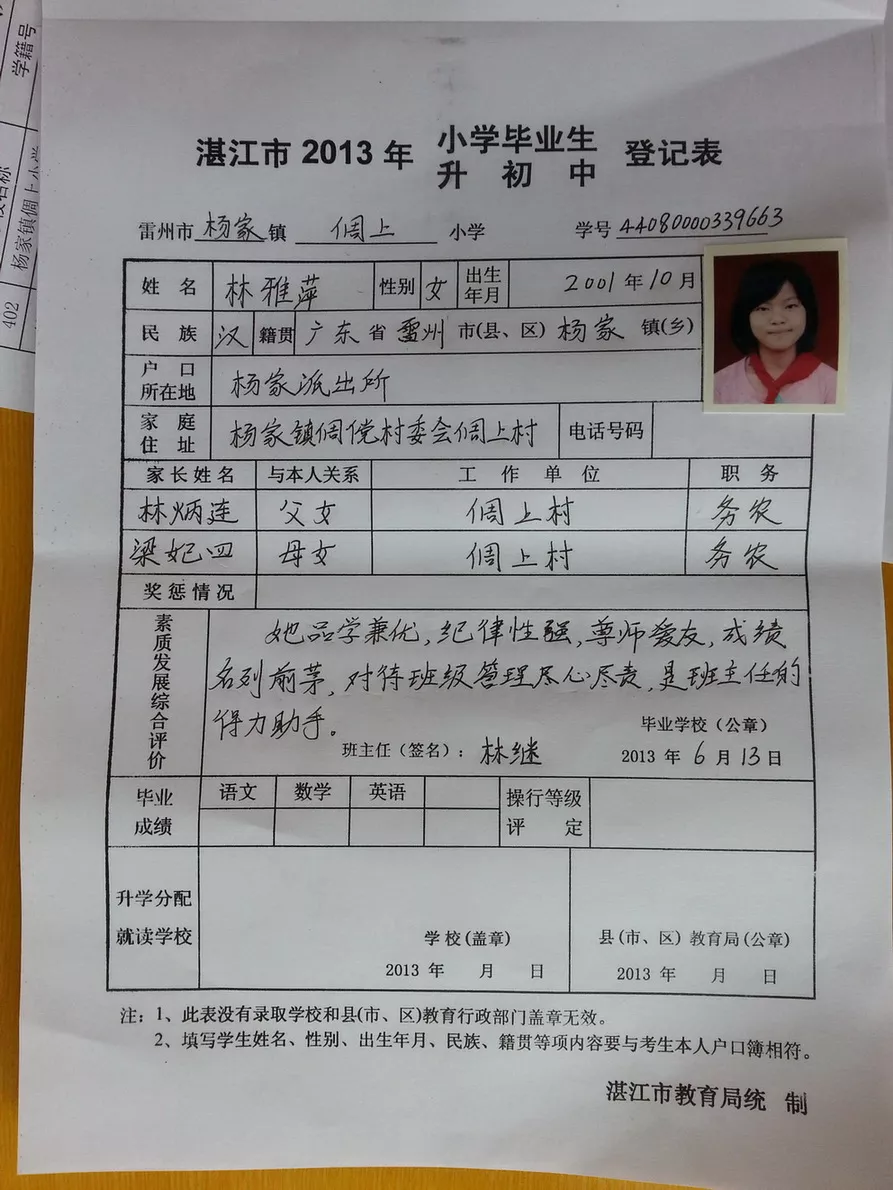 学籍号
402
杨家镇倜上小学
湛江市 2013 年 小学毕业生 登记表
升 初 中
雷州市 杨家 镇 倜上 小学 学号 44080000339663
姓 名 林雅萍 性别 女 出生年月 2001 年 10 月
民 族 汉 籍贯 广东 省 雷州 市(县、区) 杨家 镇(乡)
户 口 所在地 杨家派出所
家 庭 住 址 杨家镇倜傥村委会倜上村 电话号码
家长姓名 与本人关系 工 作 单 位 职 务
林炳连 父女 倜上村 务农
梁妃四 母女 倜上村 务农
奖惩情况
素质发展综合评价
她品学兼优,纪律性强,尊师爱友,成绩
名列前茅,对待班级管理尽心尽责,是班主任的
得力助手。
毕业学校(公章)
班主任(签名): 林继 2013 年 6 月 13 日
毕业成绩 语文 数学 英语 操行等级评 定
升学分配
就读学校
学校(盖章) 县(市、区) 教育局(公章)
2013 年 月 日 2013 年 月 日
注:1、此表没有录取学校和县(市、区)教育行政部门盖章无效。
2、填写学生姓名、性别、出生年月、民族、籍贯等项内容要与考生本人户口簿相符。
湛江市教育局统 制